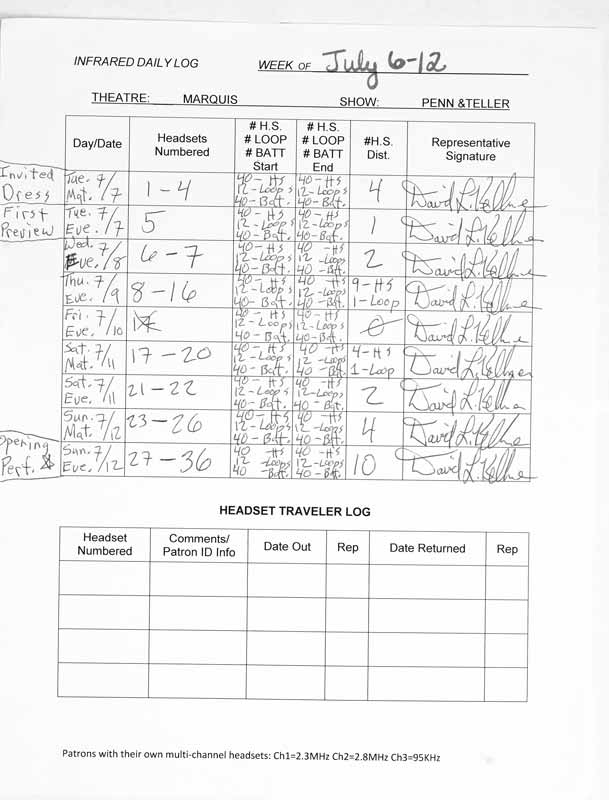 INFRARED DAILY LOG WEEK OF July 6-12
THEATRE: MARQUIS SHOW: PENN &TELLER
Day/Date Headsets Numbered # H.S. # LOOP # BATT Start # H.S. # LOOP # BATT End #H.S. Dist. Representative Signature
Invited Dress
Tue. 7/7 Mat. 1-4 40-HS 12-Loops 40-Bat. 40-HS 12-Loops 40-Bat. 4 David L. Kellner
First Preview
Tue. 7/7 Eve. 5 40-HS 12-Loops 40-Bat. 40-HS 12-Loops 40-Bat. 1 David L. Kellner
Wed. 7/8 Eve. 6-7 40-HS 12-Loops 40-Bat. 40-HS 12-Loops 40-Bat. 2 David L. Kellner
Thu. 7/9 Eve. 8-16 40-HS 12-Loops 40-Bat. 40-HS 12-Loops 40-Bat. 9-HS 1-Loop David L. Kellner
Fri. 7/10 Eve. 40-HS 12-Loops 40-Bat. 40-HS 12-Loops 40-Bat. 0 David L. Kellner
Sat. 7/11 Mat. 17-20 40-HS 12-Loops 40-Bat. 40-HS 12-Loops 40-Bat. 4-HS 1-Loop David L. Kellner
Sat. 7/11 Eve. 21-22 40-HS 12-Loops 40-Bat. 40-HS 12-Loops 40-Bat. 2 David L. Kellner
Sun. 7/12 Mat. 23-26 40-HS 12-Loops 40-Bat. 40-HS 12-Loops 40-Bat. 4 David L. Kellner
Opening Perf.
Sun. 7/12 Eve. 27-36 40-HS 12-Loops 40-Bat. 40-HS 12-Loops 40-Bat. 10 David L. Kellner
HEADSET TRAVELER LOG
Headset Numbered Comments/ Patron ID Info Date Out Rep Date Returned Rep
Patrons with their own multi-channel headsets: Ch1=2.3MHz Ch2=2.8MHz Ch3=95KHz